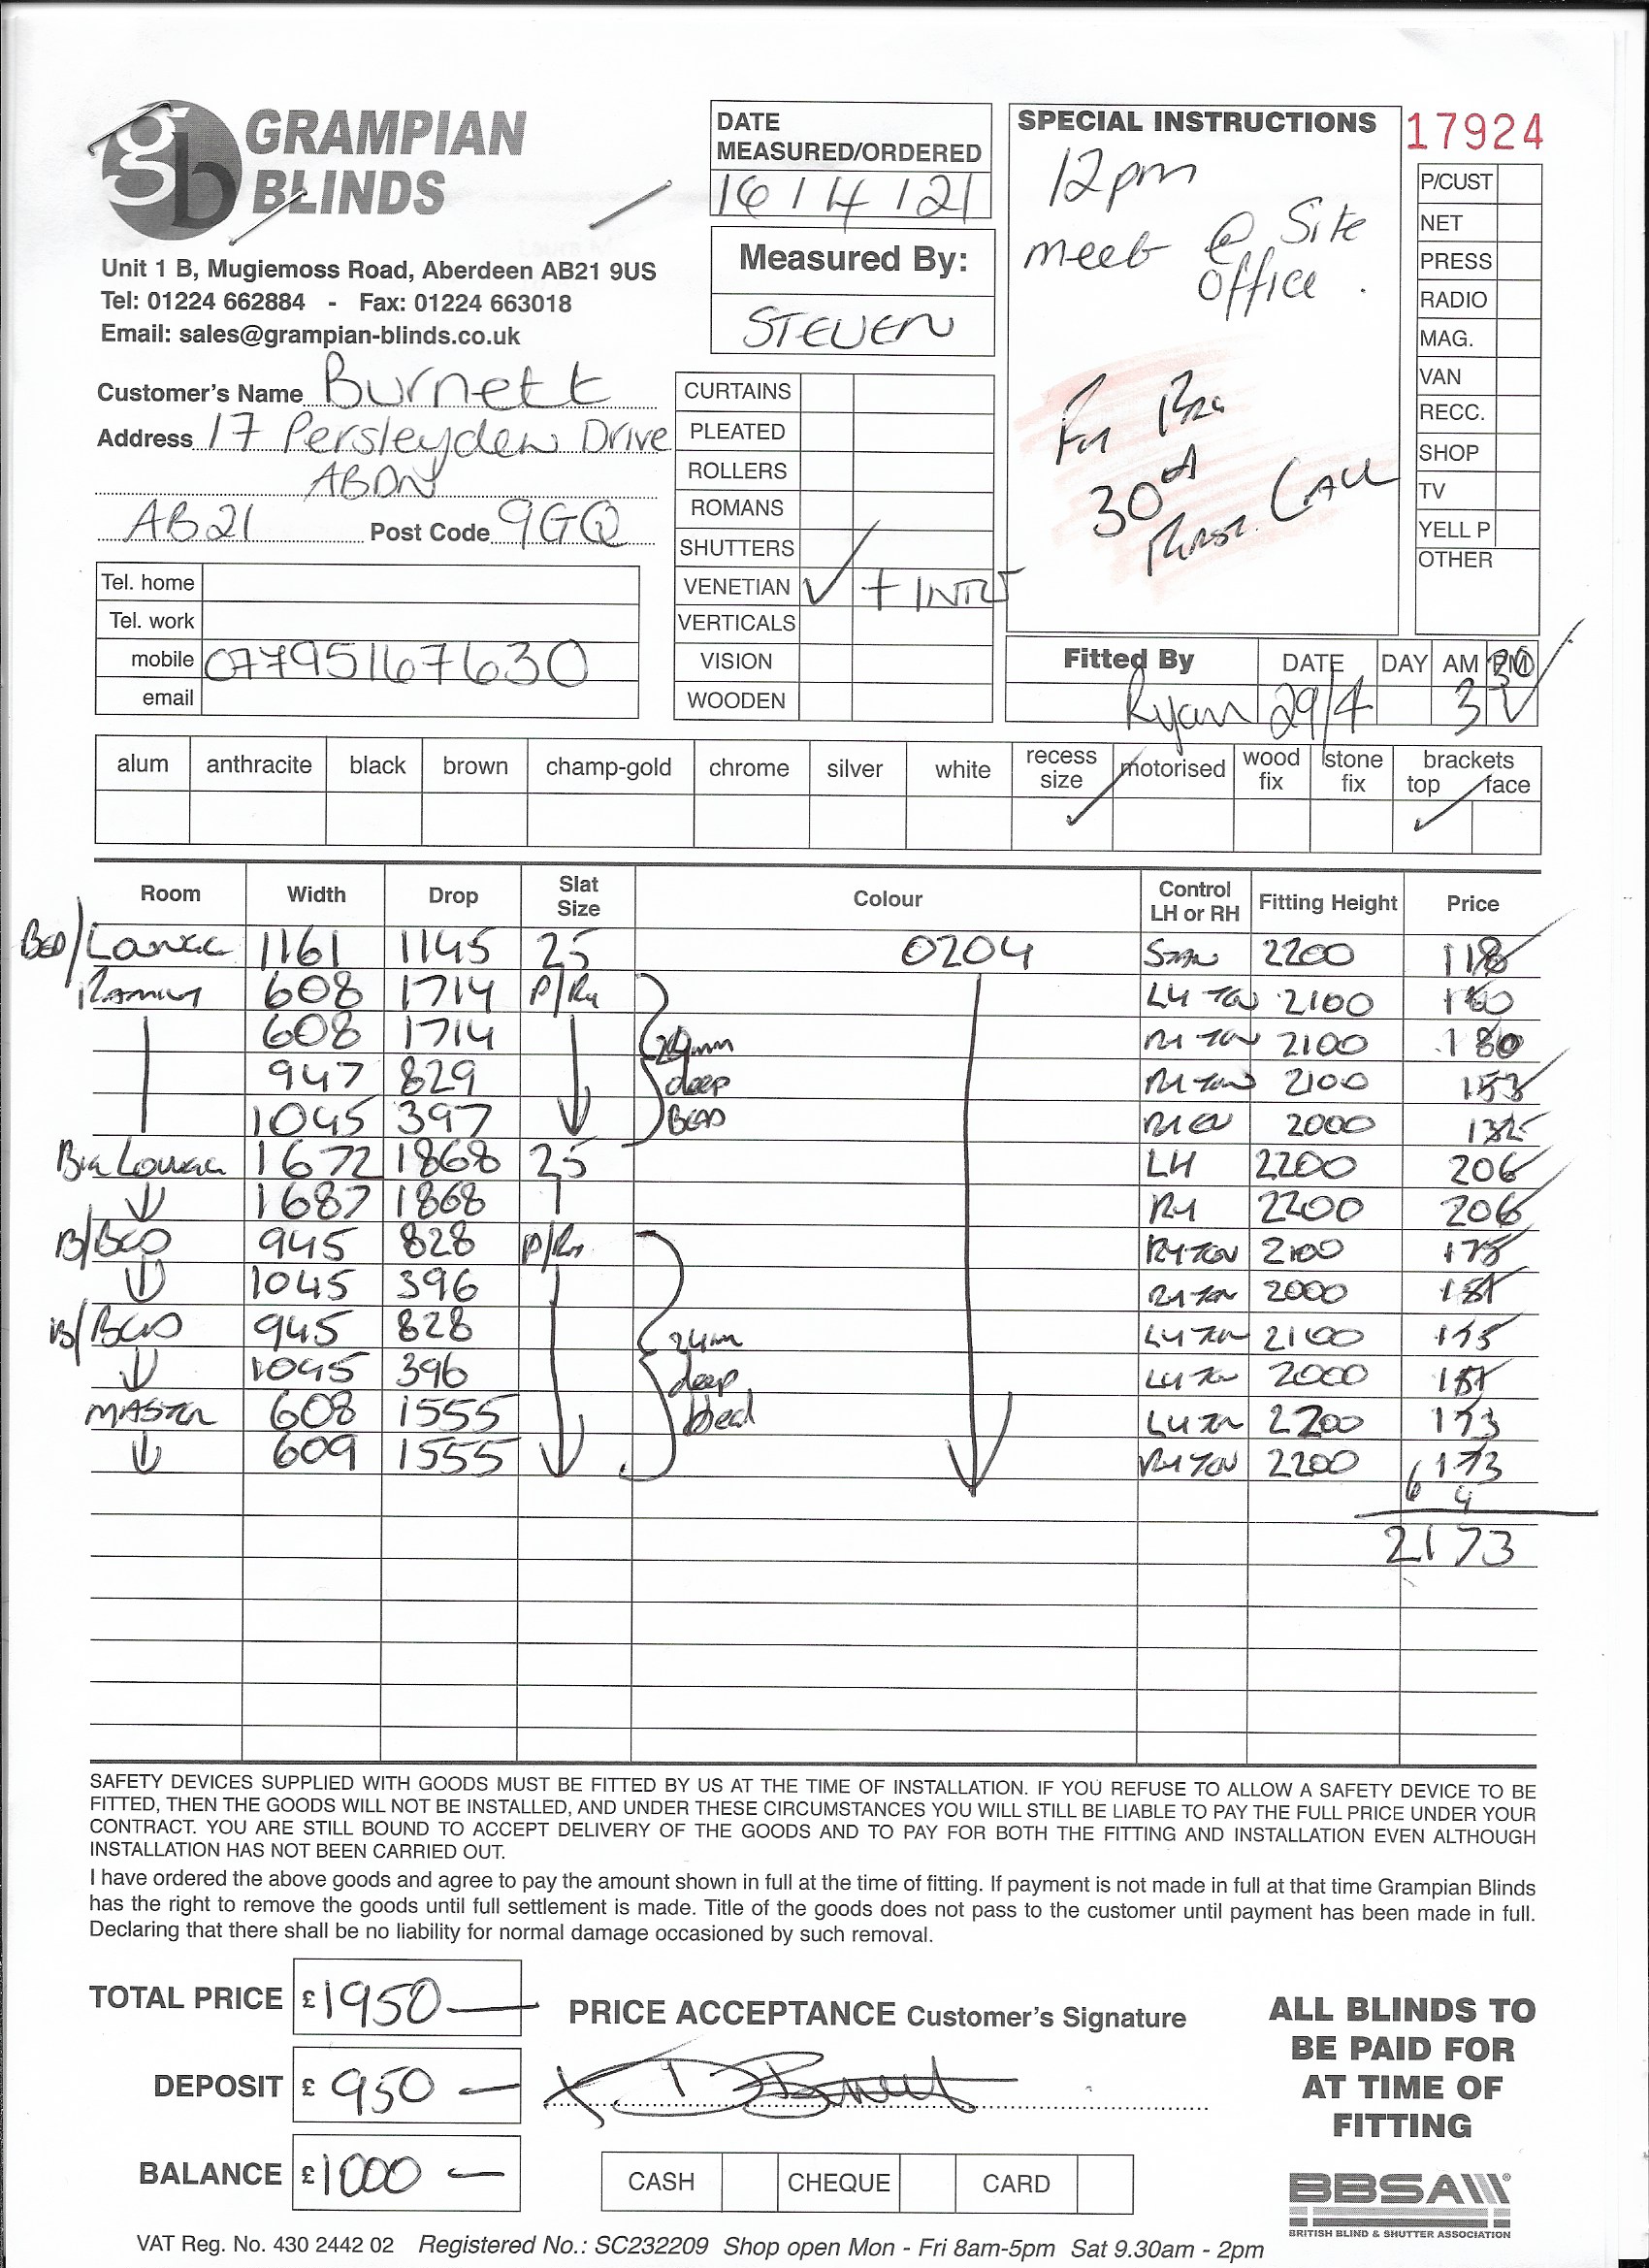 gb GRAMPIAN
BLINDS
Unit 1 B, Mugiemoss Road, Aberdeen AB21 9US
Tel: 01224 662884 - Fax: 01224 663018
Email: sales@grampian-blinds.co.uk
DATE
MEASURED/ORDERED
16/4/21
Measured By:
STEVEN
SPECIAL INSTRUCTIONS
12pm
meet @ Site
office.
30
CALL
17924
P/CUST
NET
PRESS
RADIO
MAG.
VAN
RECC.
SHOP
TV
YELL P
OTHER
Customer's Name Burnett
Address 17 Persleyden Drive
ABDN
AB21 Post Code 9GQ
Tel. home
Tel. work
mobile 07795167630
email
CURTAINS
PLEATED
ROLLERS
ROMANS
SHUTTERS
VENETIAN ✓ + INTU
VERTICALS
VISION
WOODEN
Fitted By DATE DAY AM PM
Ryan 29/4 3 ✓
alum anthracite black brown champ-gold chrome silver white recess size motorised wood fix stone fix brackets top face
✓ ✓
Room Width Drop Slat Size Colour Control LH or RH Fitting Height Price
1161 1145 25 0204 2200 118
608 1714 2100
608 1714 2100 180
947 829 deep 2100 153
1045 397 2000
1672 1868 25 LH 2200 206
1687 1868 2200 206
945 828 2100 175
1045 396 2000
945 828 24mm 2100 175
1045 396 deep 2000
MASTER 608 1555 bead 2200 173
609 1555 2200 173
2173
SAFETY DEVICES SUPPLIED WITH GOODS MUST BE FITTED BY US AT THE TIME OF INSTALLATION. IF YOU REFUSE TO ALLOW A SAFETY DEVICE TO BE
FITTED, THEN THE GOODS WILL NOT BE INSTALLED, AND UNDER THESE CIRCUMSTANCES YOU WILL STILL BE LIABLE TO PAY THE FULL PRICE UNDER YOUR
CONTRACT. YOU ARE STILL BOUND TO ACCEPT DELIVERY OF THE GOODS AND TO PAY FOR BOTH THE FITTING AND INSTALLATION EVEN ALTHOUGH
INSTALLATION HAS NOT BEEN CARRIED OUT.
I have ordered the above goods and agree to pay the amount shown in full at the time of fitting. If payment is not made in full at that time Grampian Blinds
has the right to remove the goods until full settlement is made. Title of the goods does not pass to the customer until payment has been made in full.
Declaring that there shall be no liability for normal damage occasioned by such removal.
TOTAL PRICE £1950
PRICE ACCEPTANCE Customer's Signature
DEPOSIT £950
BALANCE £1000
CASH CHEQUE CARD
ALL BLINDS TO
BE PAID FOR
AT TIME OF
FITTING
BBSA
BRITISH BLIND & SHUTTER ASSOCIATION
VAT Reg. No. 430 2442 02 Registered No.: SC232209 Shop open Mon - Fri 8am-5pm Sat 9.30am - 2pm